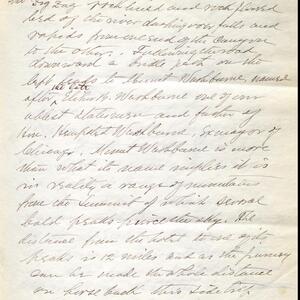 zig zag rock lined and rock floored
bed of the river dashing over falls and
rapids from one end of the canyon
to the other. Following the road
downward a bridle path on the
left leads to Mount Washburne, named
after the late Elihu B. Washburne one of our
ablest statesmen and father of
Hon. Hempstead Washburne, ex mayor of
Chicago. Mount Washburne is more
than what its name implies it is
in reality a range of mountains
from the summit of which several
bald peaks pierce the sky. The
distance from the hotel to
peaks is 12 miles and as the journey
can be made the whole distance
on horse back this side trip